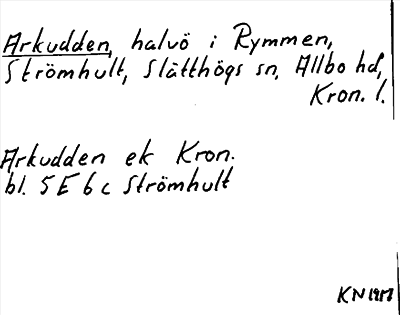 Arkudden, halvö i Rymmen,
Strömhult, Slätthögs sn, Allbo hd,
Kron. l.
Arkudden ek Kron.
bl. 5E 6c Strömhult
KN